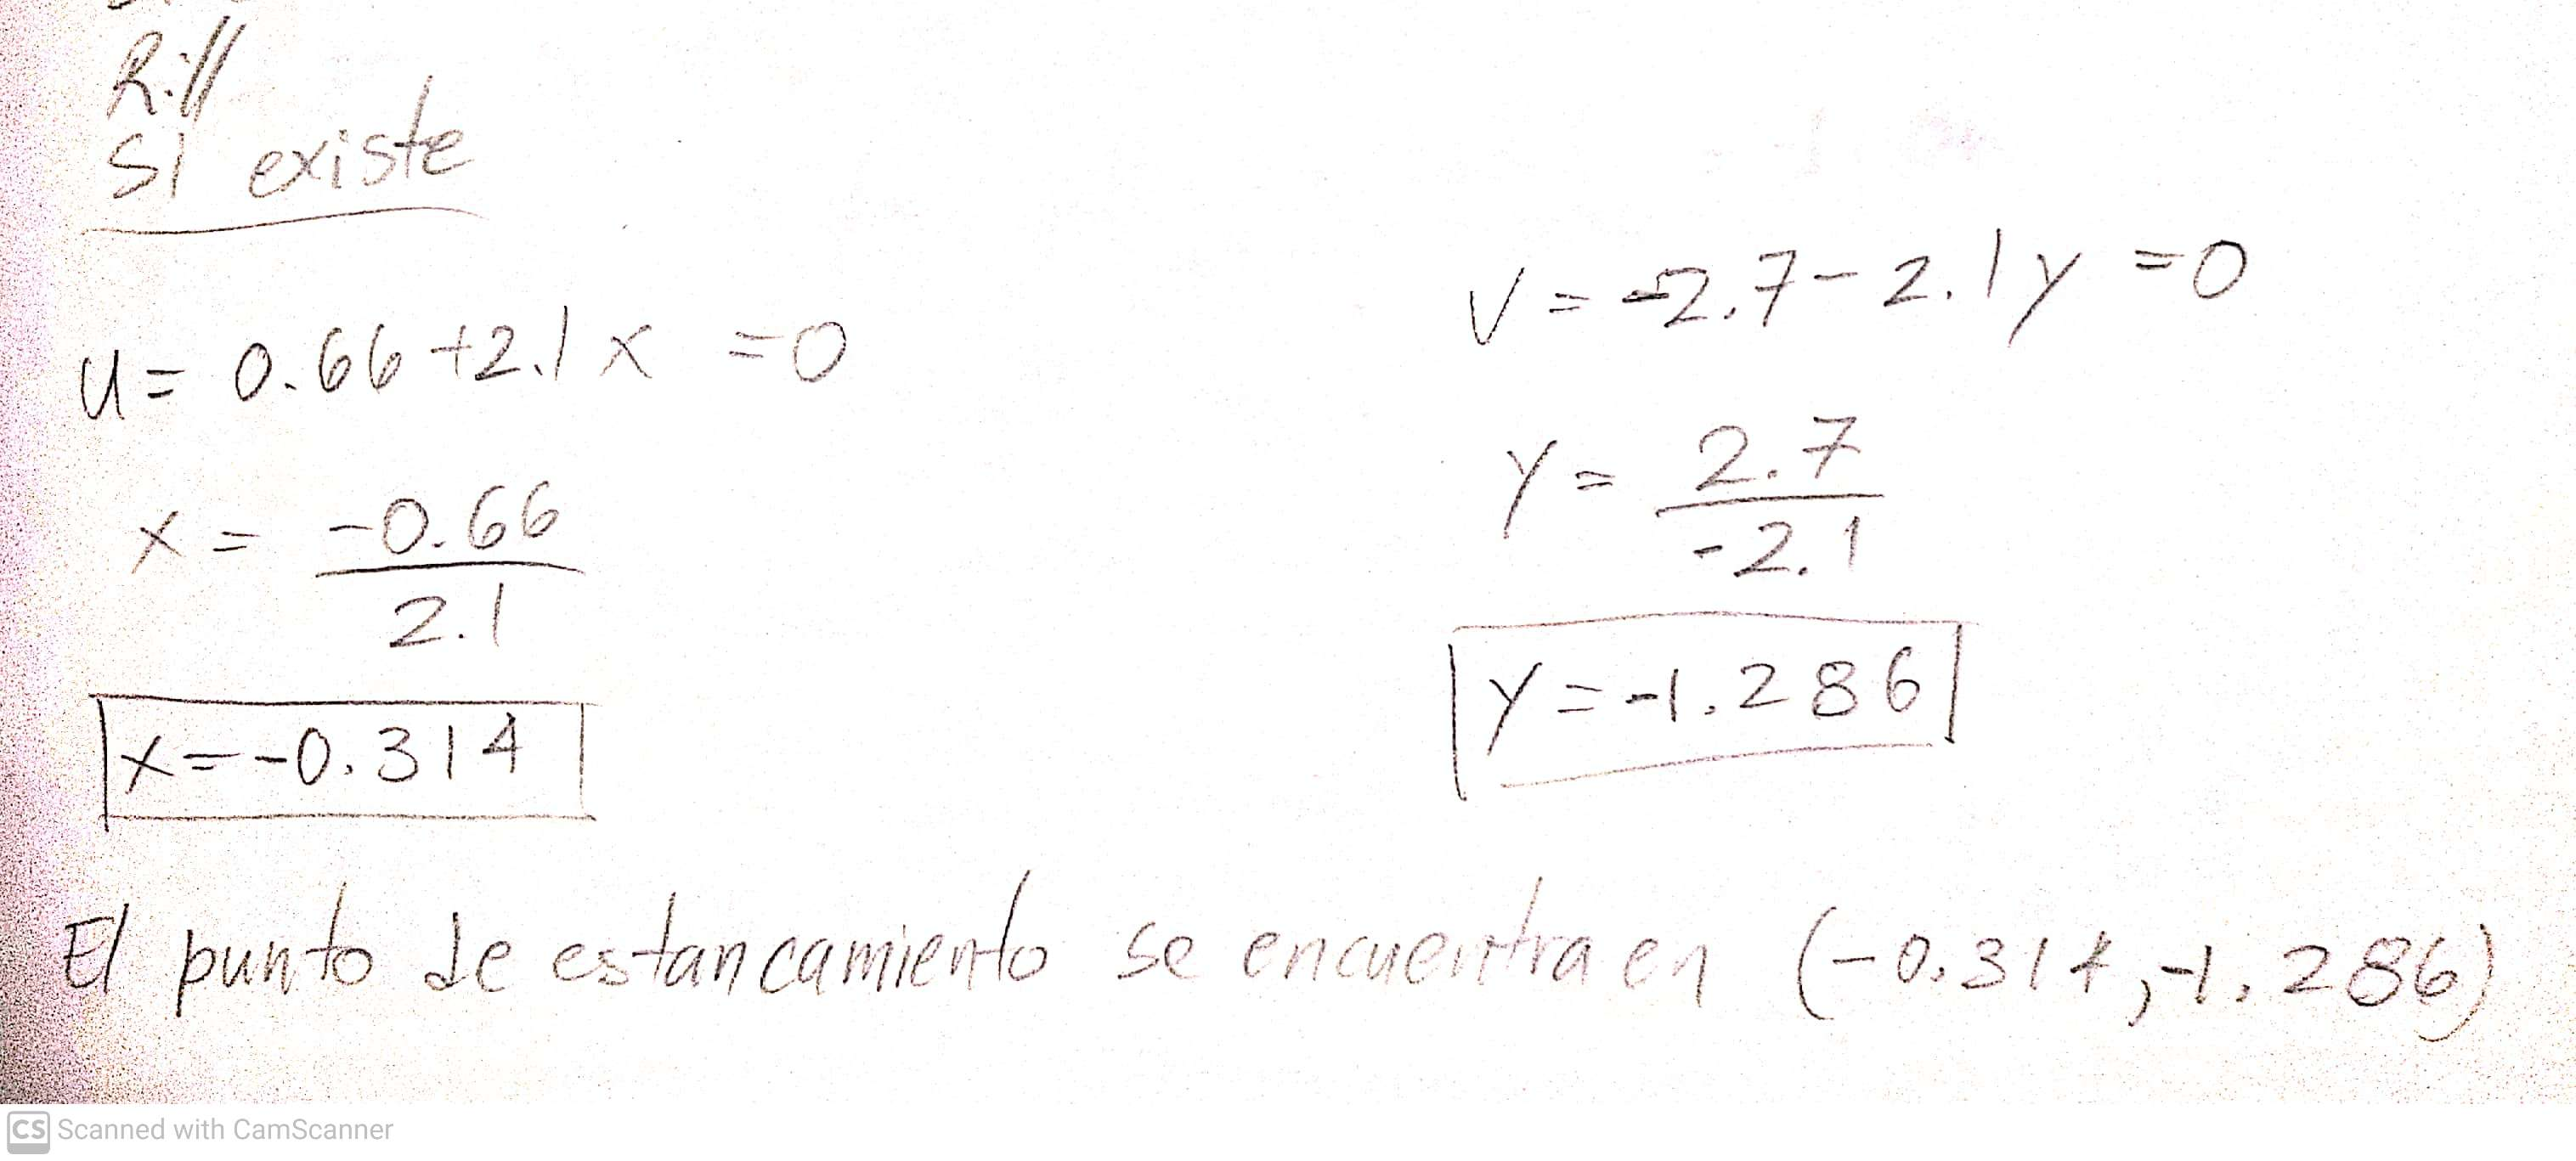 R://
Si existe
u = 0.66 + 2.1 x = 0
x = -0.66
2.1
x = -0.314
v = -2.7 - 2.1 y = 0
y = 2.7
-2.1
y = -1.286
El punto de estancamiento se encuentra en (-0.314, -1.286)
CS Scanned with CamScanner